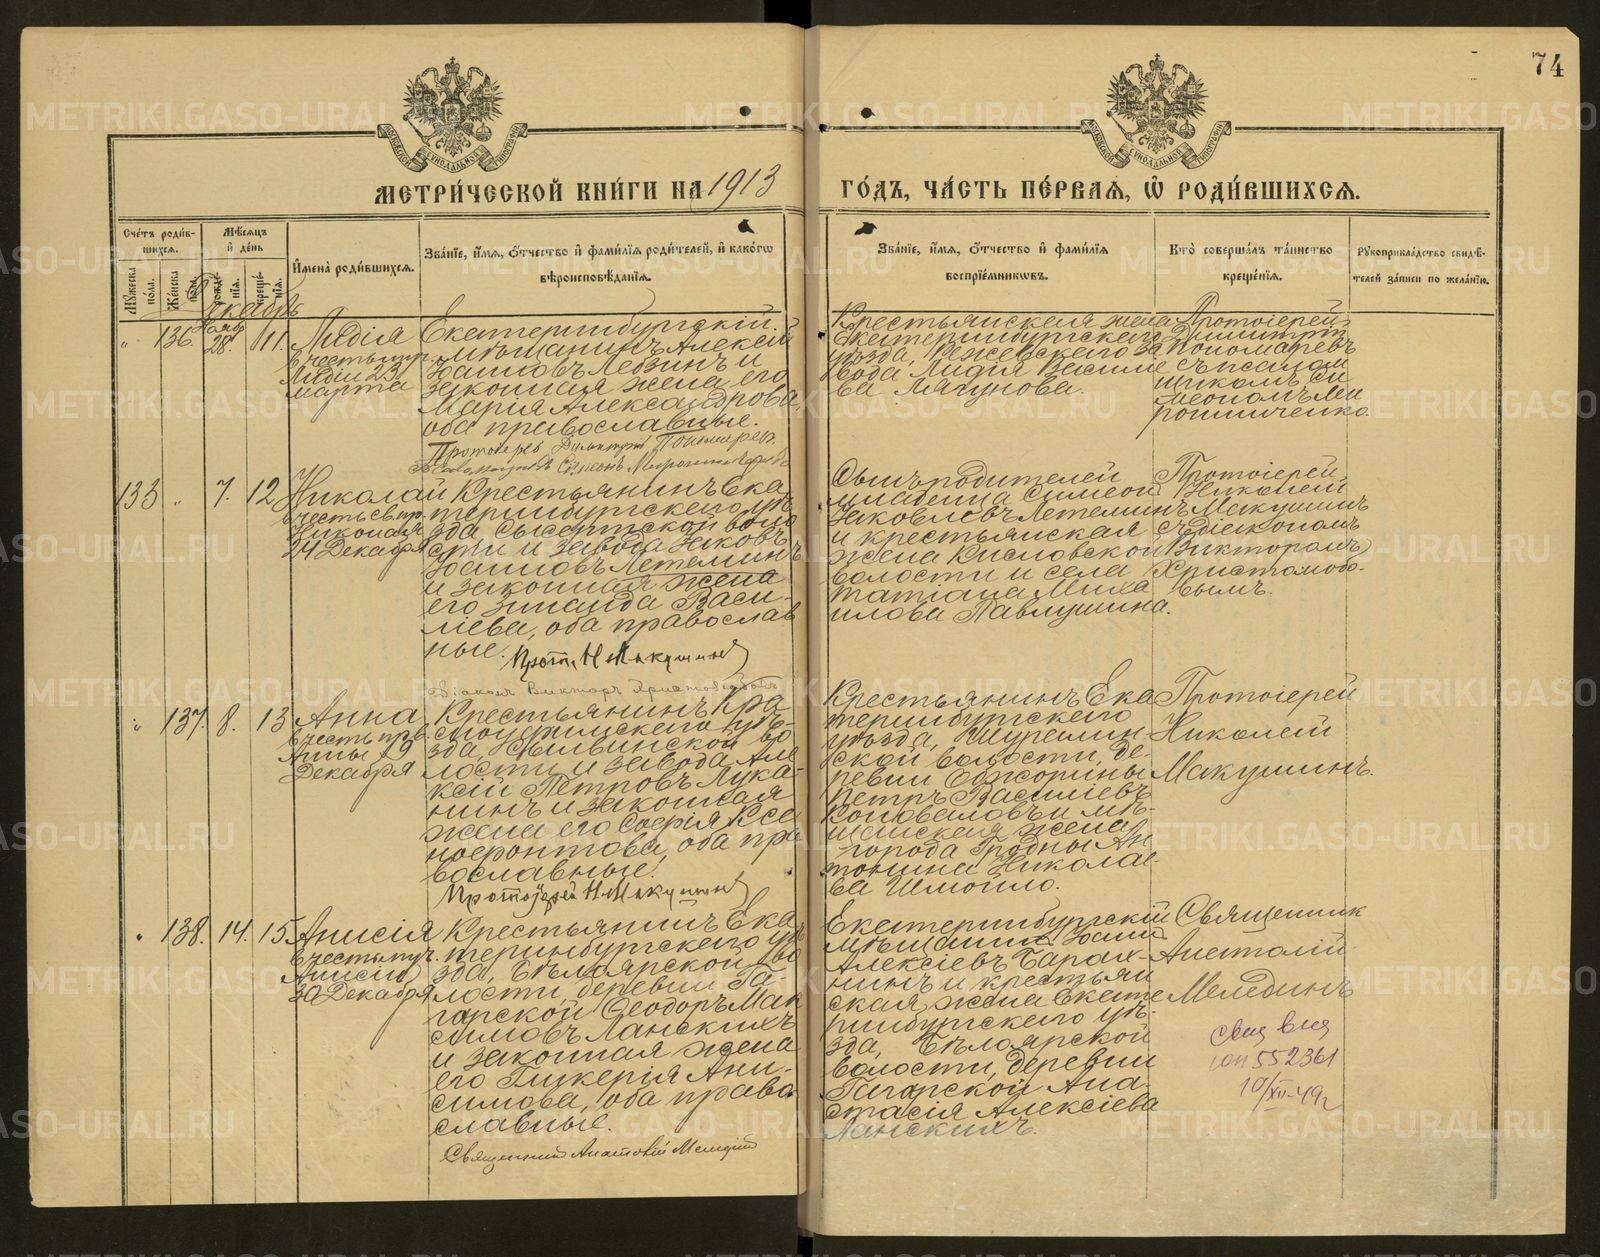 74
МОСКОВСКОЙ СѴНОДАЛЬНОЙ ТИПОГРАФІИ
МОСКОВСКОЙ СѴНОДАЛЬНОЙ ТИПОГРАФІИ
МЕТРИ́ЧЕСКОЙ КНИ́ГИ НА 1913 ГО́ДЪ, ЧА́СТЬ ПЕ́РВАЯ, Ѡ҆ РОДИ́ВШИХСЯ.
Счетъ родив-
шихся.
Мужеска пола.
Женска пола.
Мѣсяцъ
и день
рожде-
нія.
креще-
нія.
Имена родившихся.
Званіе, имя, отчество и фамилія родителей, и какогѡ
вѣроисповѣданія.
Званіе, имя, отчество и фамилія
воспріемниковъ.
Кто совершалъ таинство
крещенія.
Рукоприкладство свидѣ-
телей записи по желанію.
Декабрь
136. Ноябр 28. 11.
Лидія
въ честь муч.
Лидіи 23
марта
Екатеринбургскій
мѣщанинъ Алексій
Іоанновъ Лебзинъ и
законная жена его
Марія Александрова,
оба православные.
Протоіерей Димитрій Пономарев.
Крестьянская жена
Екатеринбургскаго
уѣзда, Режевскаго за
вода Лидія Василье
ва Лягунова.
Протоіерей
Димитрій
Пономаревъ
съ псалом
щикомъ Си
меономъ Ми
рошниченко
133 7. 12
Николай
въ честь св. пр.
Николая
24 Декабря
Крестьянинъ Ека
теринбургскаго уѣ
зда Сысертской воло
сти и завода Іаковъ
Іоанновъ Летеминъ
и законная жена
его Зинаида Васи-
ліева, оба православ
ные.
Прот. Н Макушинъ
Діаконъ Викторъ Христолюбовъ
Сынъ родителей
младенца Симеон
Іаковлевъ Летеминъ
и крестьянская
жена Кисловской
волости и села
Татіана Миха
илова Павлушина.
Протоіерей
Николай
Макушинъ
съ діакономъ
Викторомъ
Христолюбо-
вымъ.
137. 8. 13
Анна
въ честь прав.
Анны 9
Декабря
Крестьянинъ Кра
сноуфимскаго уѣ-
зда, Сылвинской во
лости и завода Але
ксій Петровъ Лука-
нинъ и законная
жена его Софія Ксе
нофонтова, оба пра
вославные.
Протоіерей Н. Макушинъ
Крестьянинъ Ека
теринбургскаго
уѣзда, Шуралин
ской волости, де-
ревни Обжорины
Петръ Василіевъ
Коноваловъ и мѣ-
щанская жена
города Гродны Ан
тонина Николае
ва Шмойло.
Протоіерей
Николай
Макушинъ.
138. 14. 15
Анисія
въ честь муч.
Анисіи
30 Декабря
Крестьянинъ Ека
теринбургскаго уѣ
зда, Бѣлоярской во
лости, деревни Га
гарской Ѳеодоръ Мак
симовъ Ланскихъ
и законная жена
его Гликерія Ани-
симова, оба право
славные.
Священникъ Анатолій Меледин
Екатеринбургскій
мѣщанинъ Іоанн
Алексіевъ Барах-
нинъ и крестьян
ская жена Екате
ринбургскаго уѣ-
зда, Бѣлоярской
волости, деревни
Гагарской Ана-
стасія Алексіева
Ланскихъ.
Священник
Анатолій
Мелединъ
552361
10/XII-49г